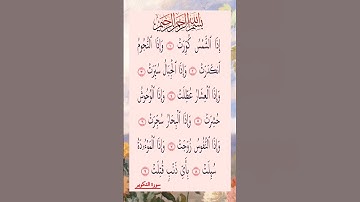 بسم الله الرحمن الرحيم
إِذَا ٱلشَّمْسُ كُوِّرَتْ ١ وَإِذَا ٱلنُّجُومُ
ٱنكَدَرَتْ ٢ وَإِذَا ٱلْجِبَالُ سُيِّرَتْ ٣
وَإِذَا ٱلْعِشَارُ عُطِّلَتْ ٤ وَإِذَا ٱلْوُحُوشُ
حُشِرَتْ ٥ وَإِذَا ٱلْبِحَارُ سُجِّرَتْ ٦
وَإِذَا ٱلنُّفُوسُ زُوِّجَتْ ٧ وَإِذَا ٱلْمَوْءُۥدَةُ
سُئِلَتْ ٨ بِأَىِّ ذَنۢبٍ قُتِلَتْ ٩
سورة التكوير